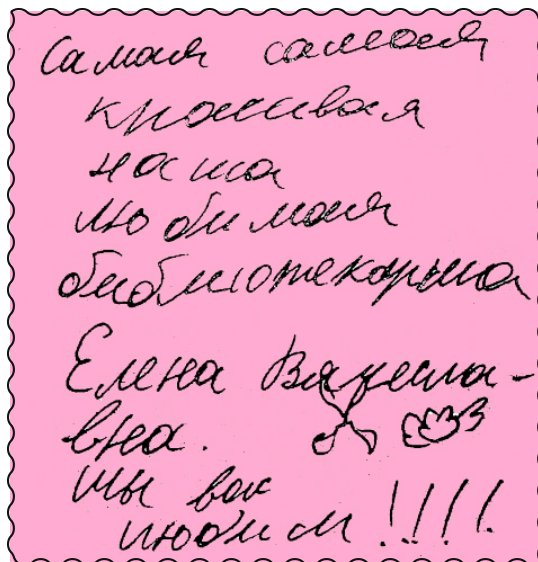 Самая самая
красивая
наша
любимая
библиотекарша
Елена Вячесла-
вна.
мы вас
любим!!!!